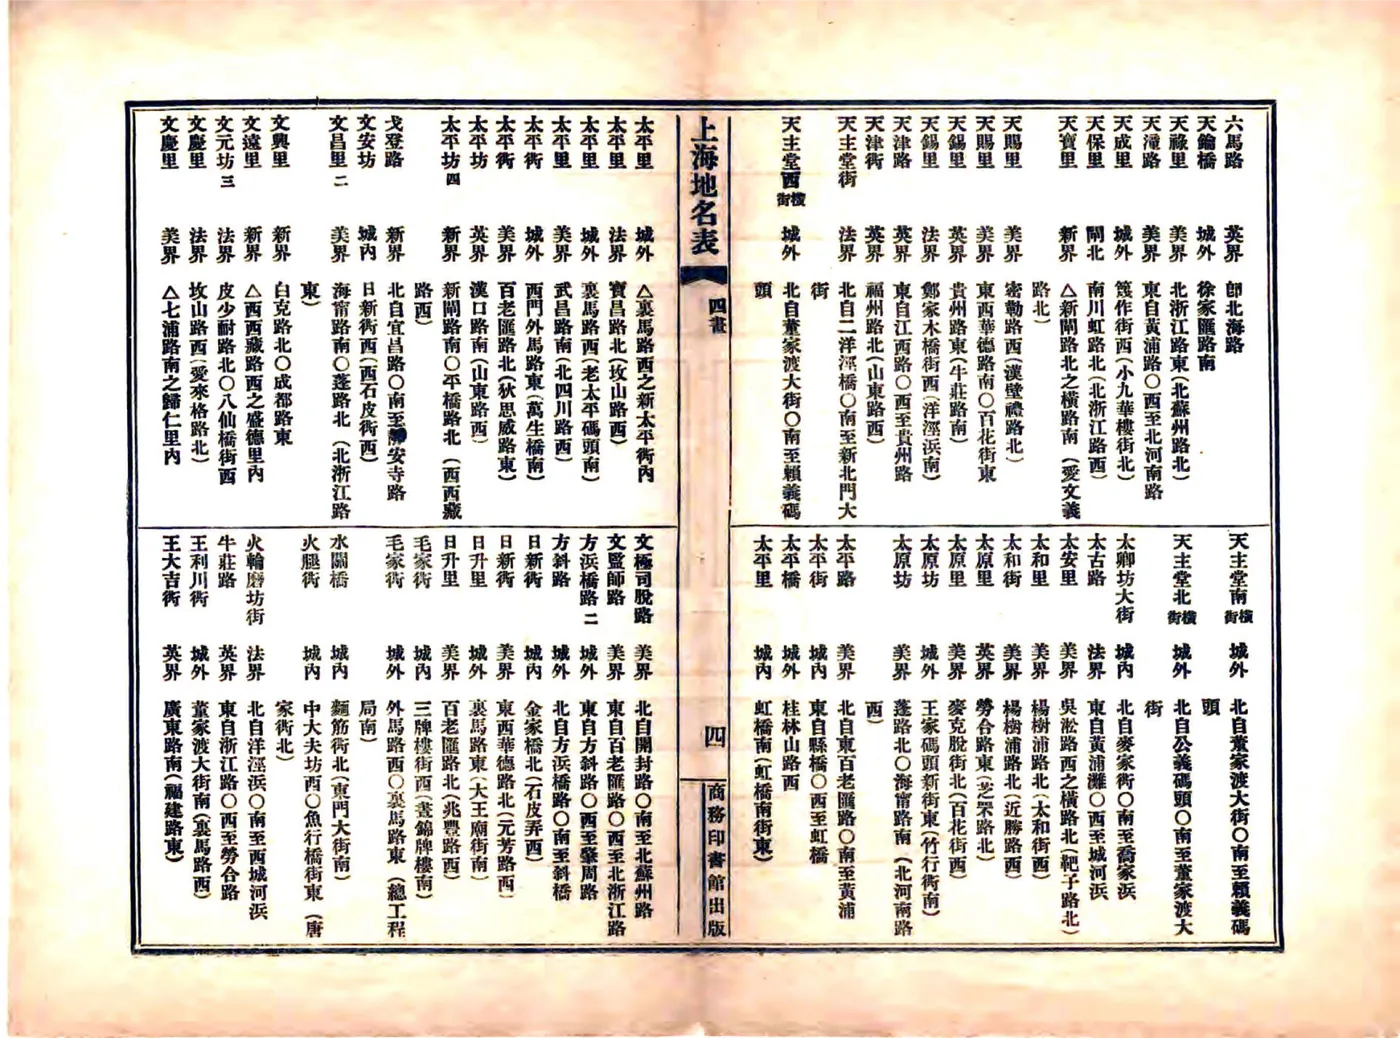 六馬路 英界 卽北海路
天鑰橋 城外 徐家匯路南
天祿里 美界 北浙江路東(北蘇州路北)
天潼路 美界 東自黃浦路〇西至北河南路
天成里 城外 篾作街西(小九華樓街北)
天保里 閘北 南川虹路北(北浙江路西)
天寶里 新界 △新閘路北之橫路南(愛文義
路北)
天賜里 美界 密勒路西(漢璧禮路北)
天賜里 美界 東西華德路南〇百花街東
天錫里 英界 貴州路東(牛莊路南)
天錫里 法界 鄭家木橋街西(洋涇浜南)
天津路 英界 東自江西路〇西至貴州路
天津街 英界 福州路北(山東路西)
天主堂街 法界 北自二洋涇橋〇南至新北門大
街
天主堂西橫街 城外 北自董家渡大街〇南至賴義碼
頭
天主堂南橫街 城外 北自董家渡大街〇南至賴義碼
頭
天主堂北橫街 城外 北自公義碼頭〇南至董家渡大
街
太卿坊大街 城內 北自麥家街〇南至喬家浜
太古路 法界 東自黃浦灘〇西至城河浜
太安里 美界 吳淞路西之橫路北(靶子路北)
太和里 美界 楊樹浦路北(太和街西)
太和街 美界 楊樹浦路北(近勝路西)
太原里 英界 勞合路東(芝罘路北)
太原里 美界 麥克脫街北(百花街西)
太原坊 城外 王家碼頭新街東(竹行街南)
太原坊 美界 蓬路北〇海甯路南(北河南路
西)
太平路 美界 北自東百老匯路〇南至黃浦
太平街 城內 東自縣橋〇西至虹橋
太平橋 城外 桂林山路西
太平里 城內 虹橋南(虹橋南街東)
上海地名表
四畫
四
商務印書館出版
太平里 城外 △裏馬路西之新太平街內
太平里 法界 寶昌路北(坟山路西)
太平里 城外 裏馬路西(老太平碼頭南)
太平里 美界 武昌路南(北四川路西)
太平街 城外 西門外馬路東(萬生橋南)
太平街 美界 百老匯路北(狄思威路東)
太平坊 英界 漢口路南(山東路西)
太平坊四 新界 新閘路南〇平橋路北(西西藏
路西)
戈登路 新界 北自宜昌路〇南至靜安寺路
文安坊 城內 日新街西(西石皮街西)
文昌里二 美界 海甯路南〇蓬路北(北浙江路
東)
文興里 新界 白克路北〇成都路東
文遠里 新界 △西西藏路西之盛德里內
文元坊三 法界 皮少耐路北〇八仙橋街西
文慶里 法界 坟山路西(愛來格路北)
文慶里 美界 △七浦路南之歸仁里內
文極司脫路 美界 北自開封路〇南至北蘇州路
文監師路 美界 東自百老匯路〇西至北浙江路
方浜橋路二 城外 東自方斜路〇西至肇周路
方斜路 城外 北自方浜橋路〇南至斜橋
日新街 城內 金家橋北(石皮弄西)
日新街 美界 東西華德路北(元芳路西)
日升里 城外 裏馬路東(大王廟街南)
日升里 美界 百老匯路北(兆豐路西)
毛家街 城內 三牌樓街西(晝錦牌樓南)
毛家街 城外 外馬路西〇裏馬路東(總工程
局南)
水關橋 城內 麵筋街北(東門大街南)
火腿街 城內 中大夫坊西〇魚行橋街東(唐
家街北)
火輪磨坊街 法界 北自洋涇浜〇南至西城河浜
牛莊路 英界 東自浙江路〇西至勞合路
王利川街 城外 董家渡大街南(裏馬路西)
王大吉街 英界 廣東路南(福建路東)